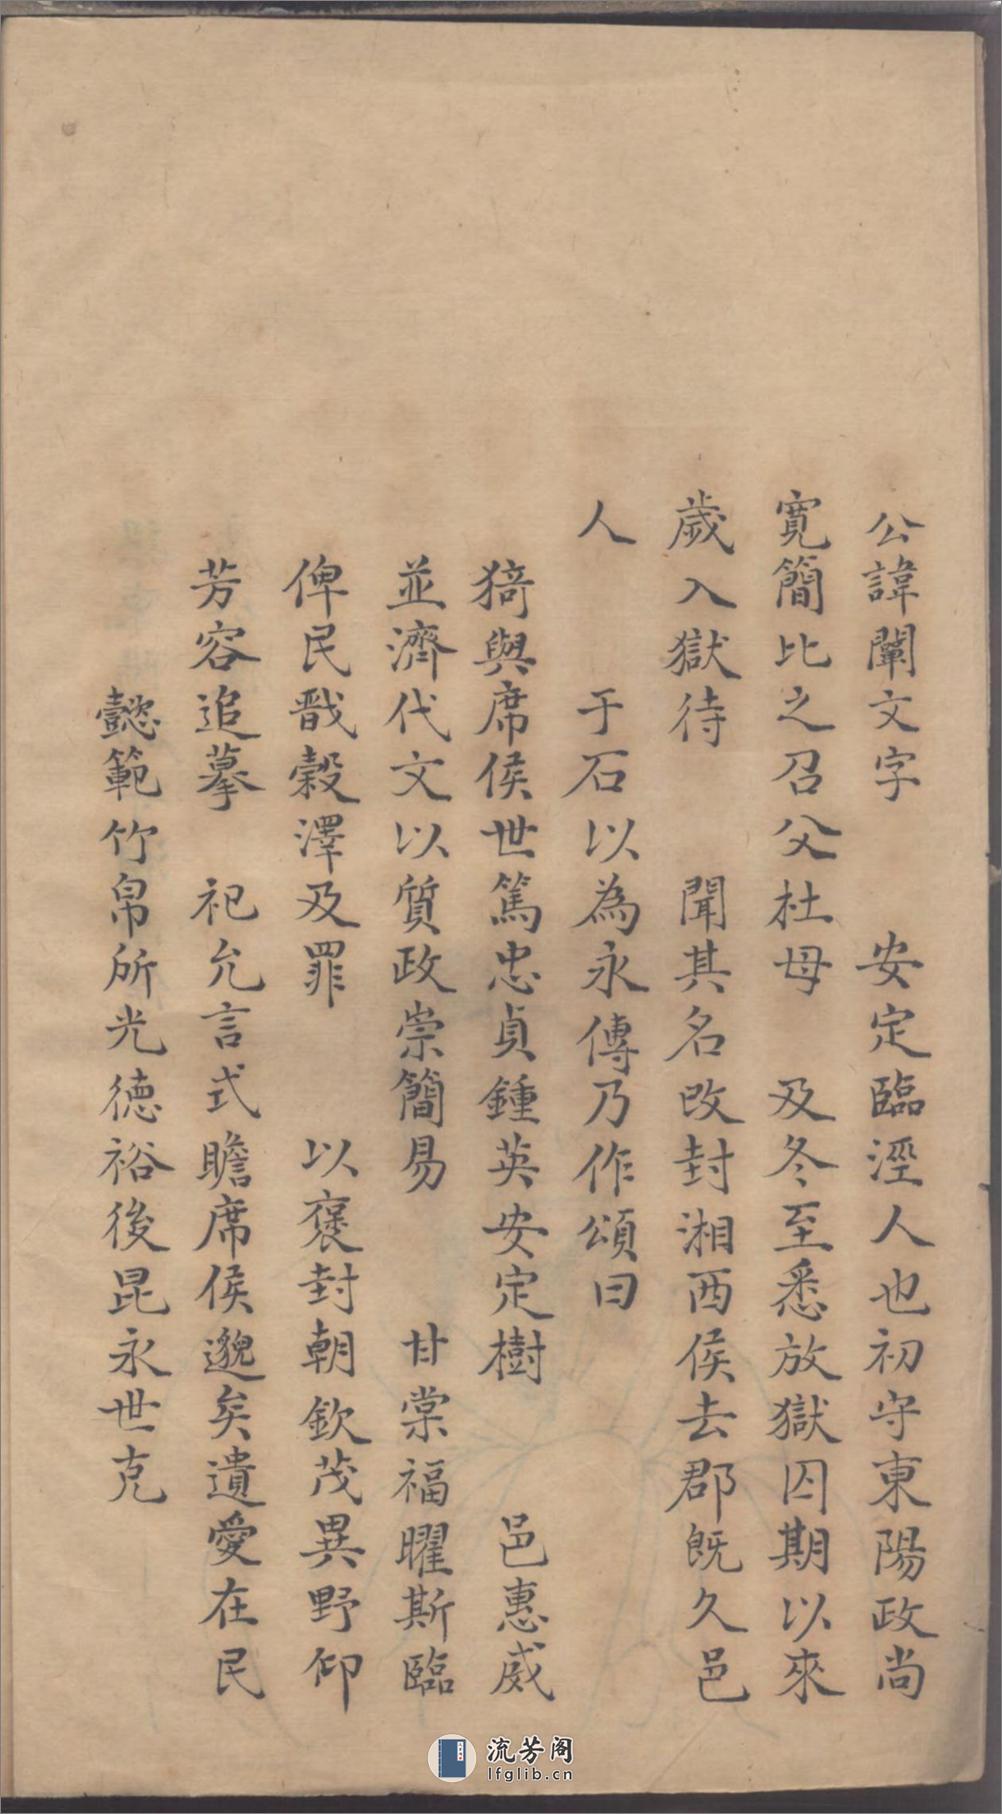 公諱闡文字　安定臨涇人也初守東陽政尚
寛簡比之召父杜母　及冬至悉放獄囚期以來
歲入獄待　聞其名改封湘西侯去郡既久邑
人　于石以為永傳乃作頌曰
猗與席侯世篤忠貞鍾英安定樹　邑惠威
並濟代文以質政崇簡易　甘棠福曜斯臨
俾民戩榖澤及罪　以褒封朝欽茂異野仰
芳容追摹　祀允言式瞻席侯邈矣遺愛在民
懿範竹帛所光德裕後昆永世克
流芳阁
lfglib.cn